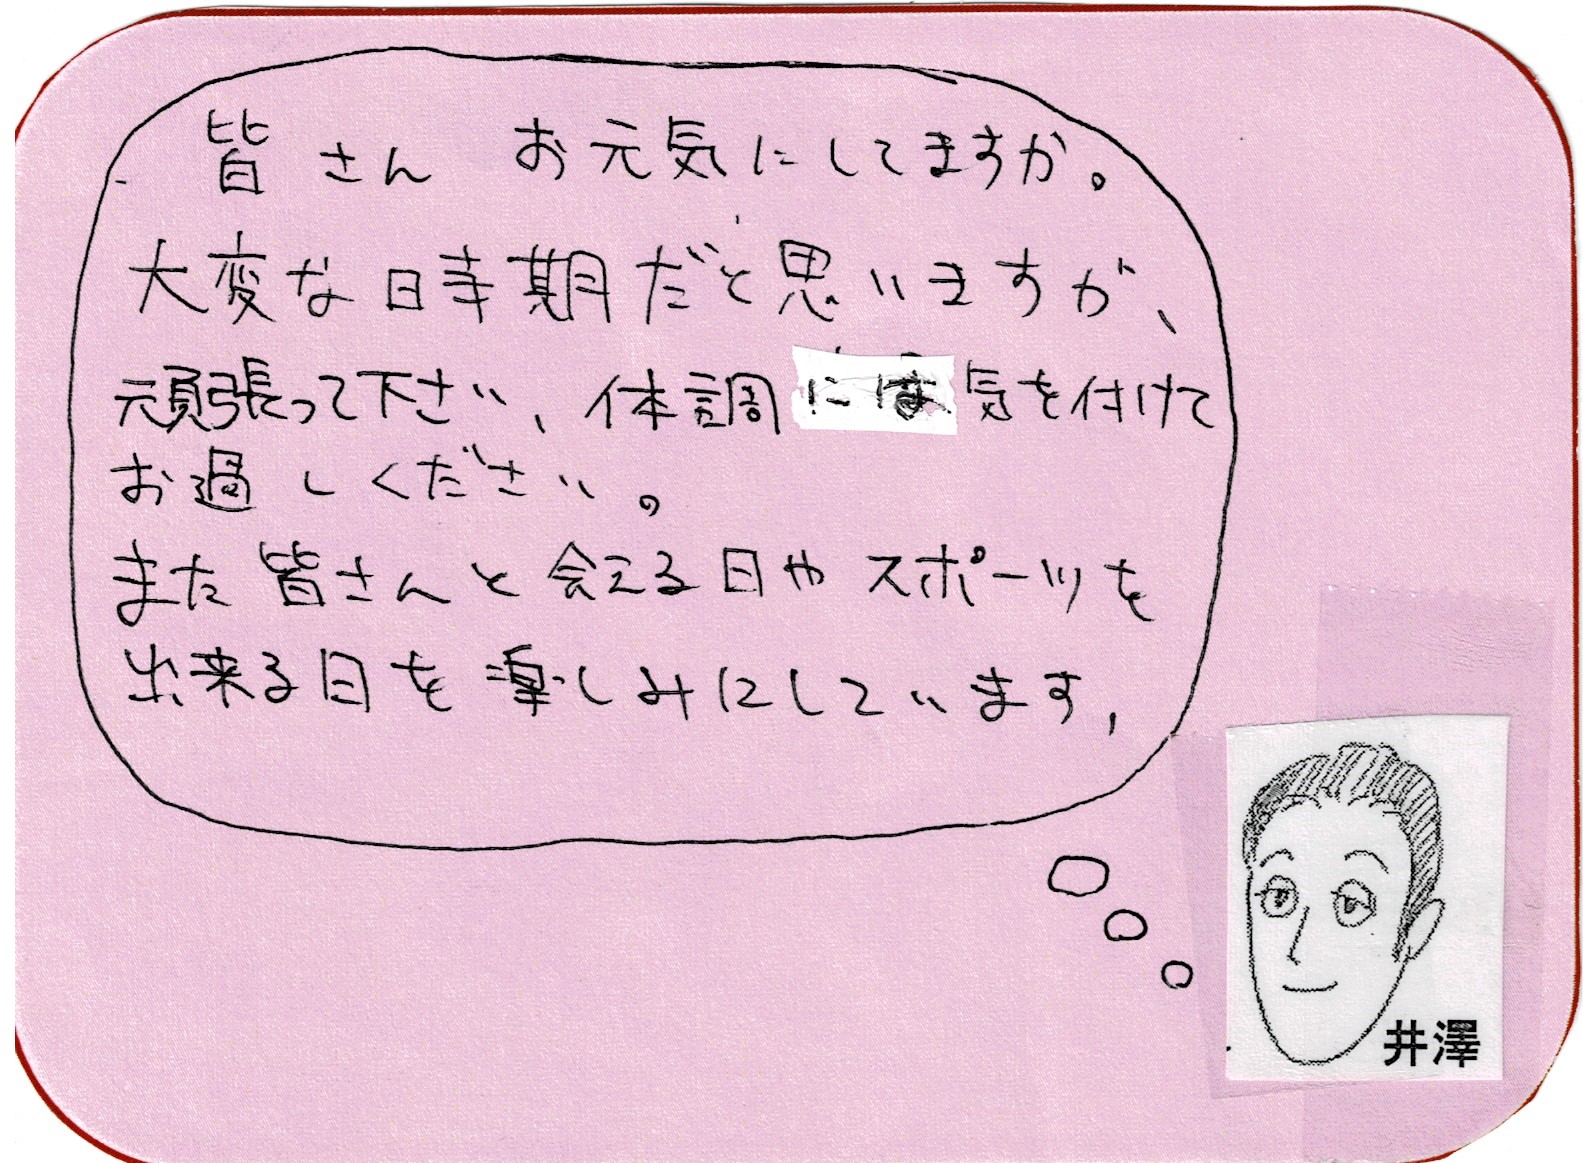 皆さん お元気にしてますか。
大変な時期だと思いますが、
頑張って下さい、体調には気を付けて
お過しください。
また皆さんと会える日やスポーツを
出来る日を楽しみにしています,
井澤